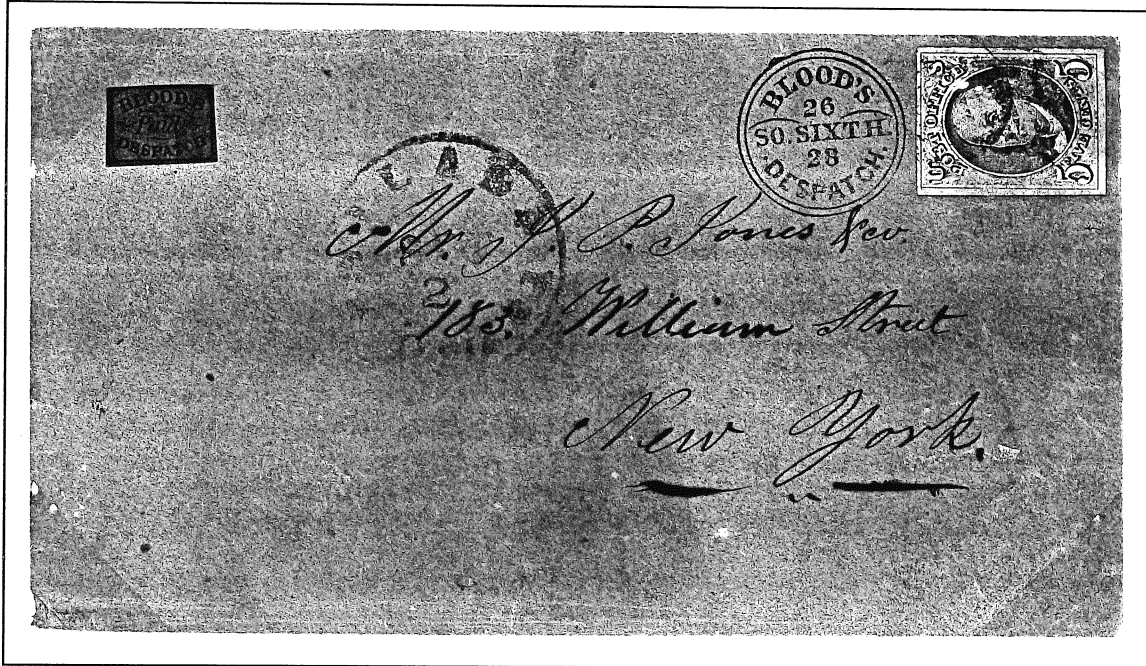 BLOOD'S
Penny
DESPATCH
BLOOD'S
26
SO. SIXTH.
28
DESPATCH.
POST OFFICE
5
5
Mr. J. P. Jones & co.
183. William Street
New York.